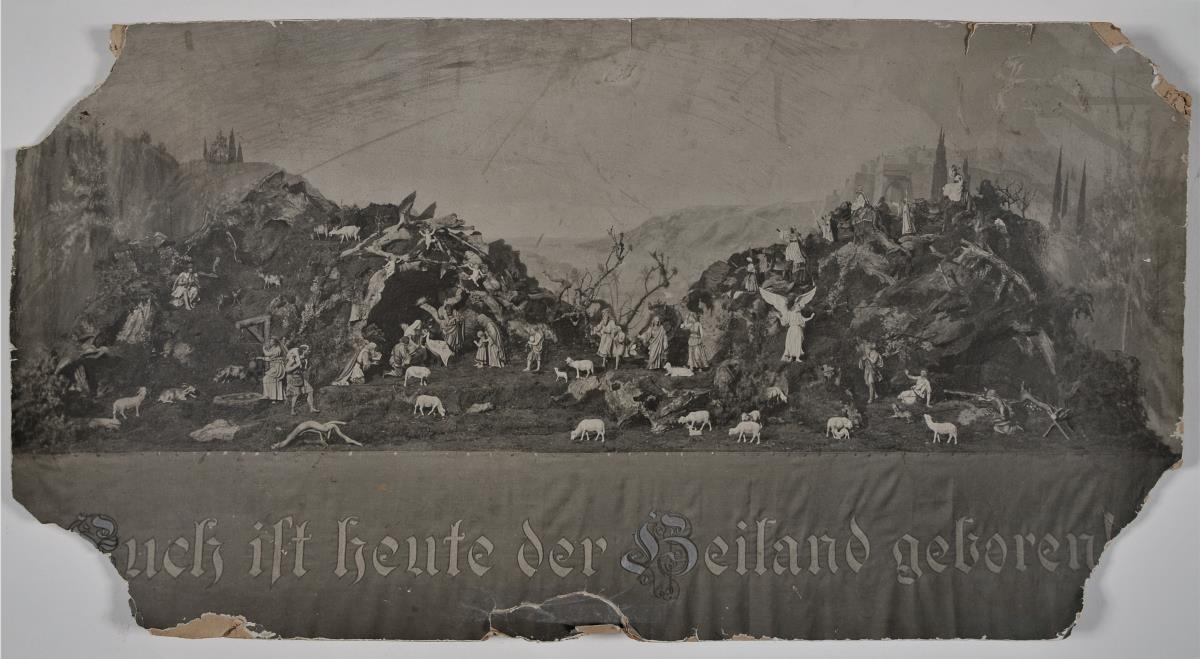 Euch ist heute der Heiland geboren!